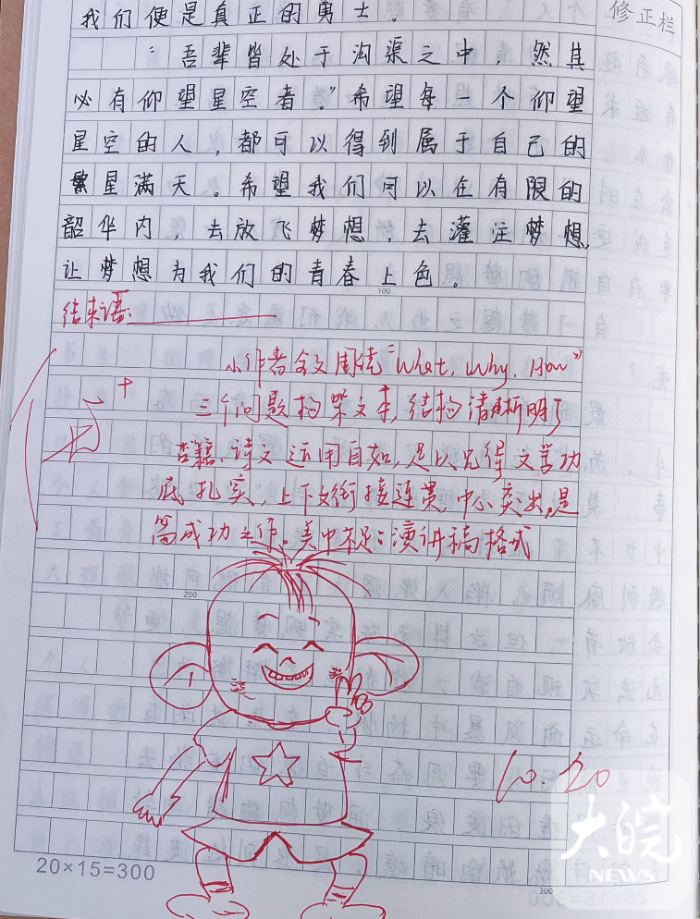 我们便是真正的勇士。
修正栏
“吾辈皆处于沟渠之中，然其
必有仰望星空者。”希望每一个仰望
星空的人，都可以得到属于自己的
繁星满天。希望我们可以在有限的
韶华内，去放飞梦想，去灌注梦想，
让梦想为我们的青春上色。
100
结束语：
小作者全文围绕“What，Why，How”
三个问题构架文章，结构清晰明了
诗文运用自如，足以见得文学功
底扎实，上下文衔接连贯，中心突出，是
篇成功之作。美中不足：演讲稿格式
200
10.20
大皖
NEWS
20×15=300
300